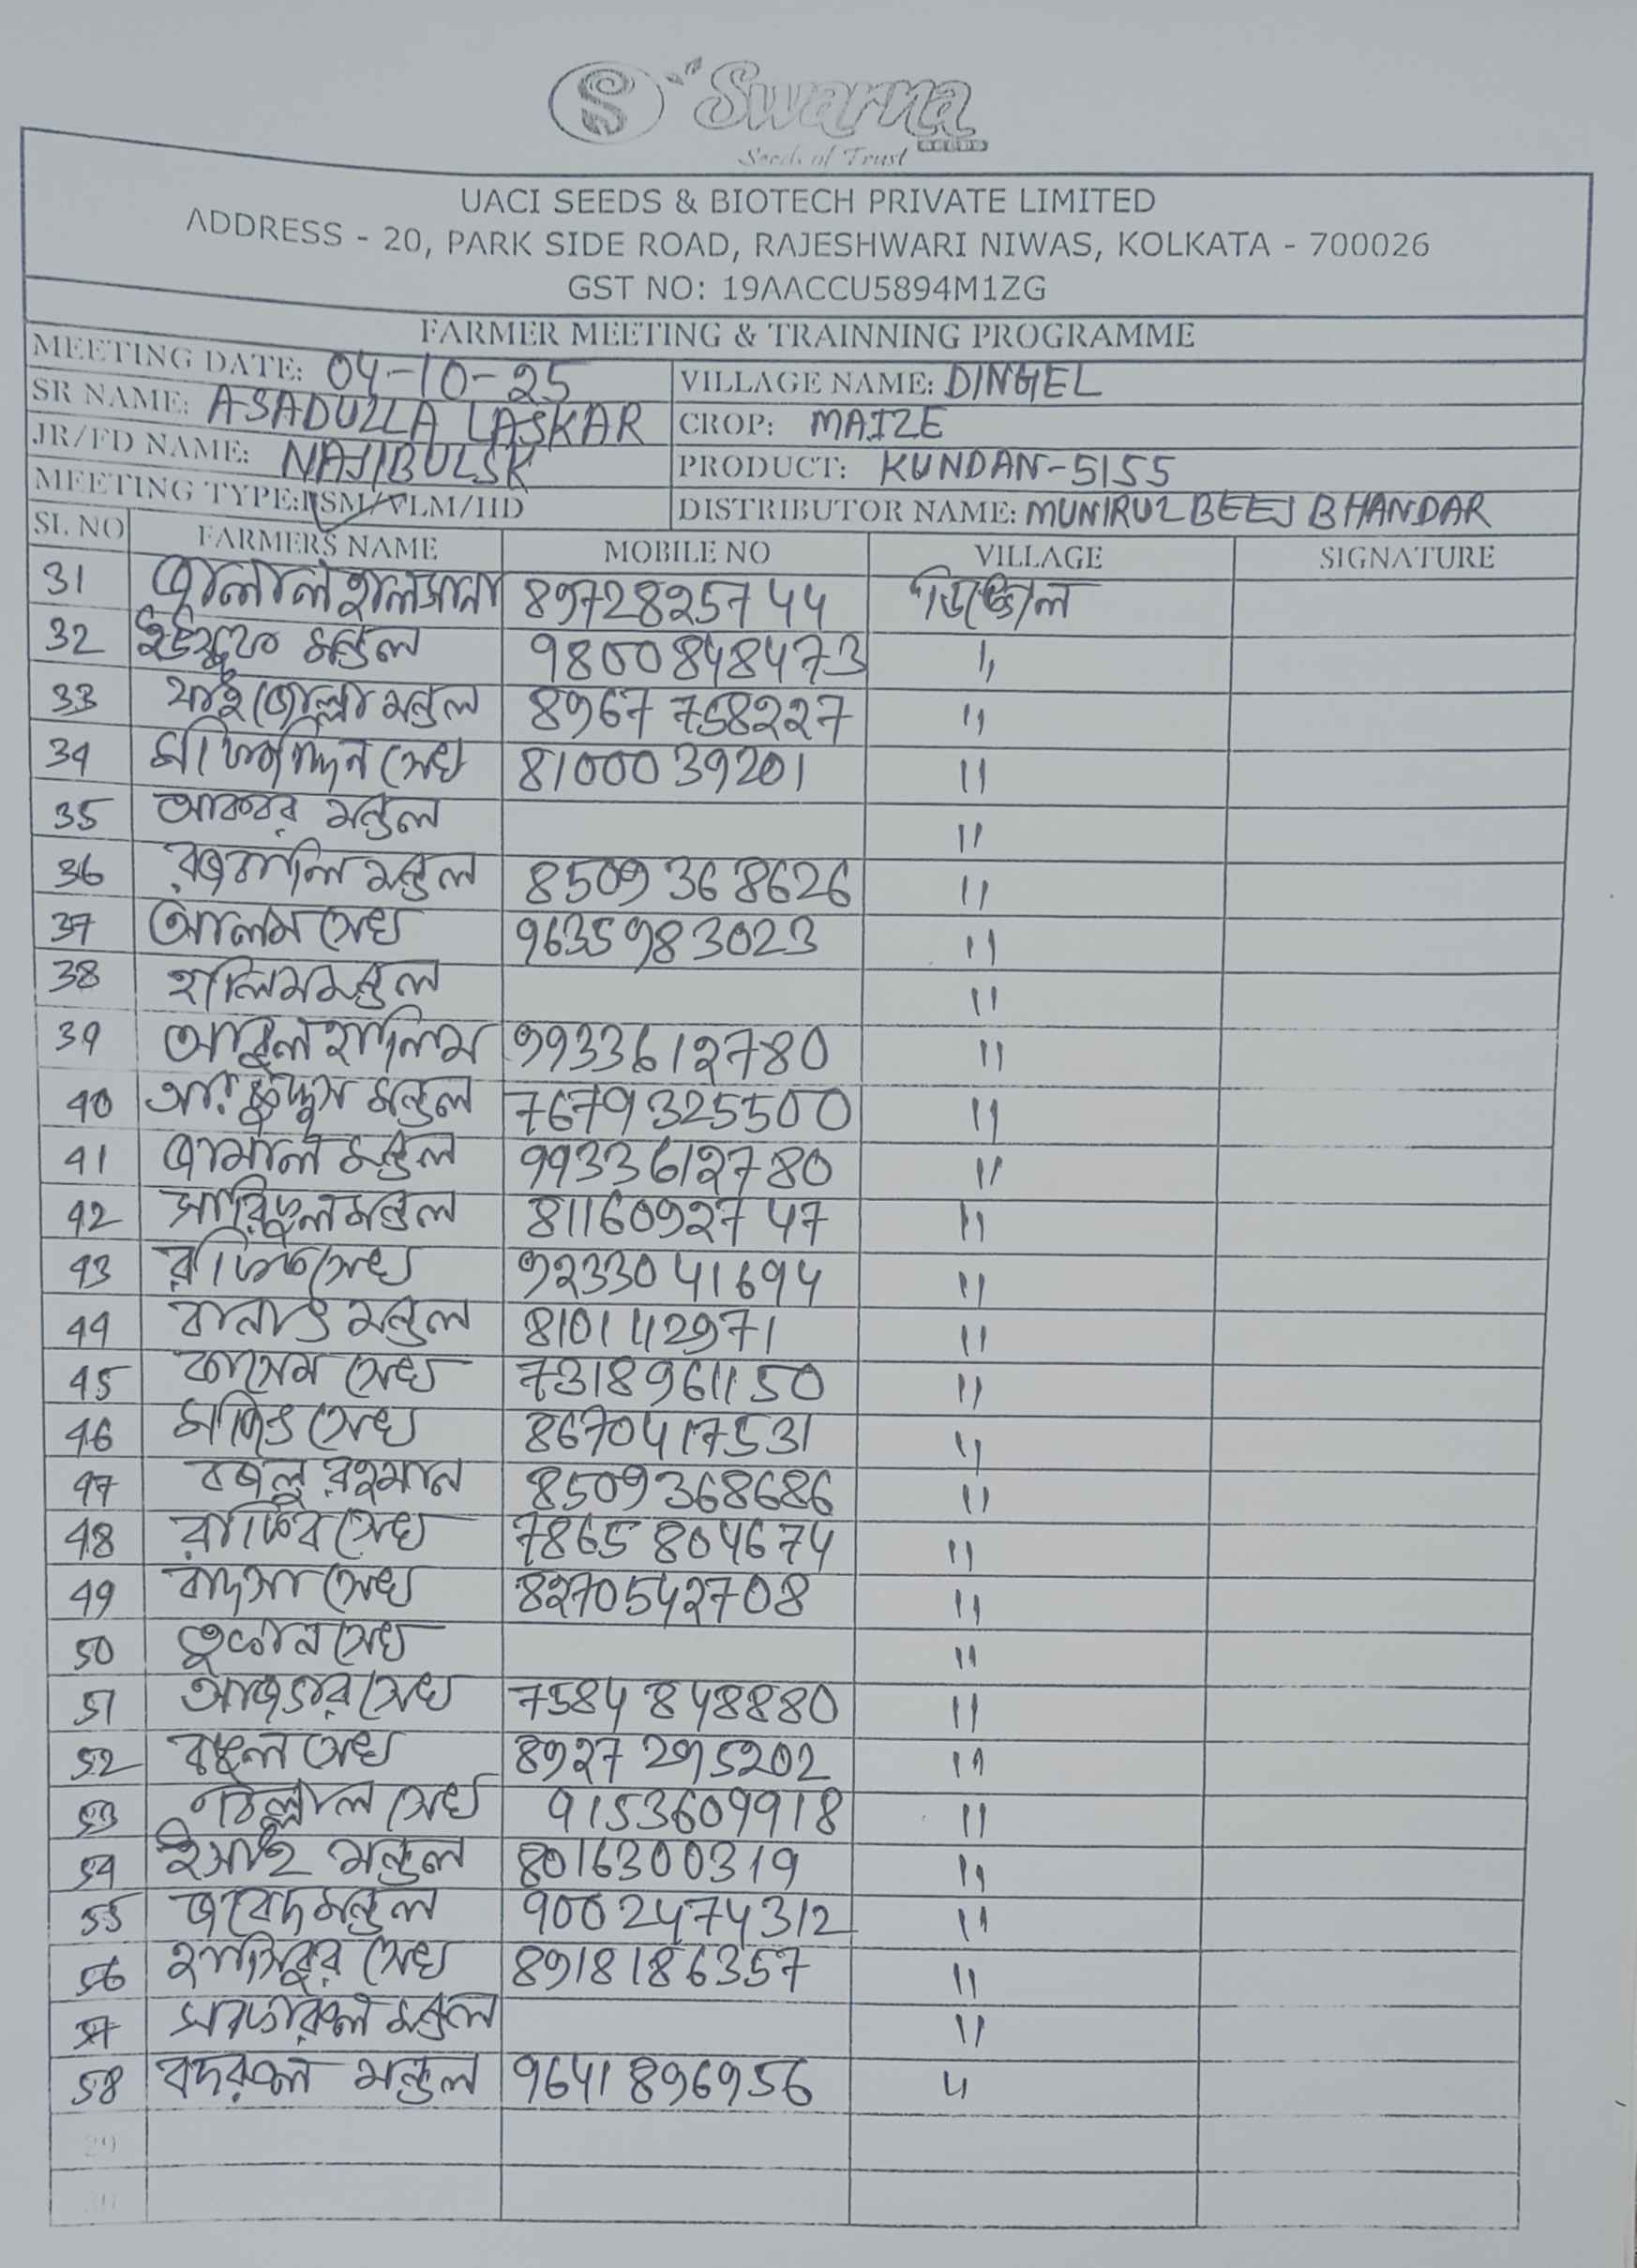 Swarna
SEEDS
Seeds of Trust
UACI SEEDS & BIOTECH PRIVATE LIMITED
ADDRESS - 20, PARK SIDE ROAD, RAJESHWARI NIWAS, KOLKATA - 700026
GST NO: 19AACCU5894M1ZG
FARMER MEETING & TRAINNING PROGRAMME
MEETING DATE: 04-10-25 VILLAGE NAME: DINGEL
SR NAME: ASADULLA LASKAR CROP: MAIZE
JR/FD NAME: NAJIBULSK PRODUCT: KUNDAN-5155
MEETING TYPE: SM/VLM/HD DISTRIBUTOR NAME: MUNIRUL BEEJ BHANDAR
SL NO FARMERS NAME MOBILE NO VILLAGE SIGNATURE
31 জালাল হালসানা 8972825744 ডিঙ্গেল
32 ইউসুফ মন্ডল 9800848473 "
33 মন্ডল 8967758227 "
34 সেখ 8100039201 "
35 আকবর মন্ডল "
36 মন্ডল 8509368626 "
37 আলম সেখ 9635983023 "
38 হালিম মন্ডল "
39 আবুল হালিম 9933612780 "
40 মন্ডল 7679325500 "
41 জামাল মন্ডল 9933612780 "
42 সারিফুল মন্ডল 8116092747 "
43 সেখ 9233041694 "
44 মন্ডল 8101112971 "
45 কাসেম সেখ 7318961150 "
46 সেখ 8670417531 "
47 বজলু রহমান 8509368686 "
48 সেখ 7865804674 "
49 বাদসা সেখ 8270542708 "
50 তুফান সেখ "
51 সেখ 7584848880 "
52 সেখ 8927295202 "
53 বিল্লাল সেখ 9153609918 "
54 ইসাই মন্ডল 8016300319 "
55 জাবেদ মন্ডল 9002474312 "
56 হাসিবুর সেখ 8918186357 "
57 মন্ডল "
58 বদরুল মন্ডল 9641896956 "
29
30